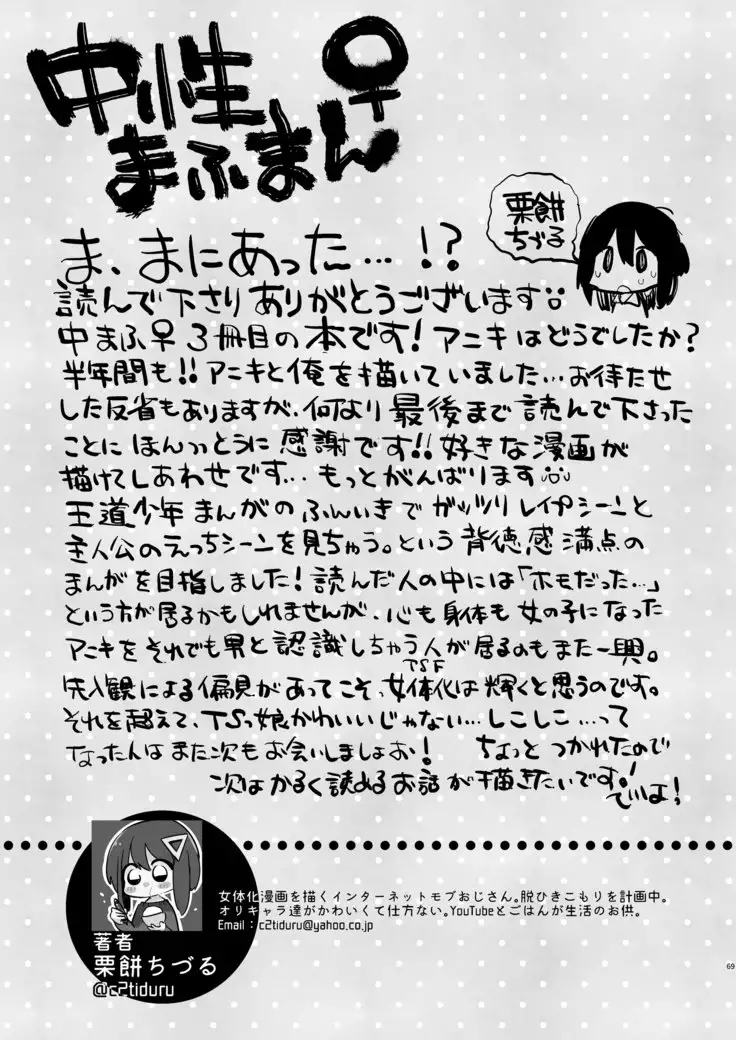 中性
まふまん♀
栗餅
ちづる
ま、まにあった…!?
読んで下さりありがとうございます
中まふ♀3冊目の本です!アニキはどうでしたか?
半年間も!!アニキと俺を描いていました…お待たせ
した反省もありますが、何より最後まで読んで下さった
ことにほんっっとうに感謝です!!好きな漫画が
描けてしあわせです…もっとがんばります
王道少年まんがのふんいきでガッツリレイプシーンと
主人公のえっちシーンを見ちゃう。という背徳感満点の
まんがを目指しました!読んだ人の中には「ホモだった…」
という方が居るかもしれませんが、心も身体も女の子になった
アニキをそれでも男と認識しちゃう人が居るのもまた一興。
先入観による偏見があってこそっ女体化は輝くと思うのです。
TSF
それを超えて、TSっ娘かわいいじゃない…しこしこ…って
なったんはまた次もお会いしましょお! ちょっとつかれたので
次はかるく読めるお話が描きたいです!
でいは!
女体化漫画を描くインターネットモブおじさん。脱ひきこもりを計画中。
オリキャラ達がかわいくて仕方ない。YouTubeとごはんが生活のお供。
Email:c2tiduru@yahoo.co.jp
著者
栗餅ちづる
@c2tiduru
69